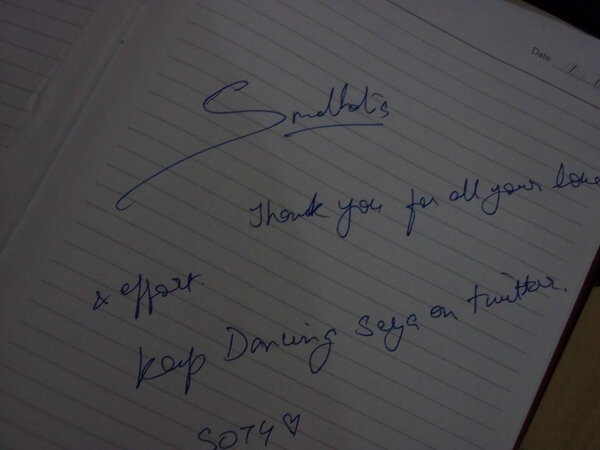 Date / /
Thank you for all your love
& effort.
Keep Dancing Seya on twitter.
SOTY ♡